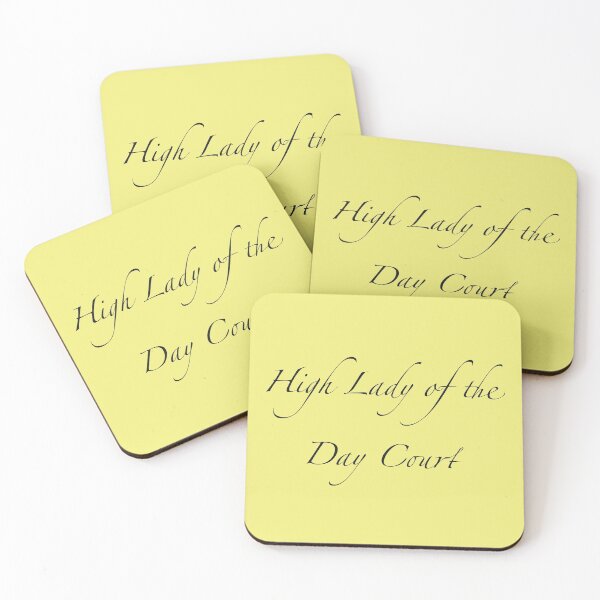 High Lady of th
urt
High Lady of the
Day Court
High Lady of the
Day Cou
High Lady of the
Day Court